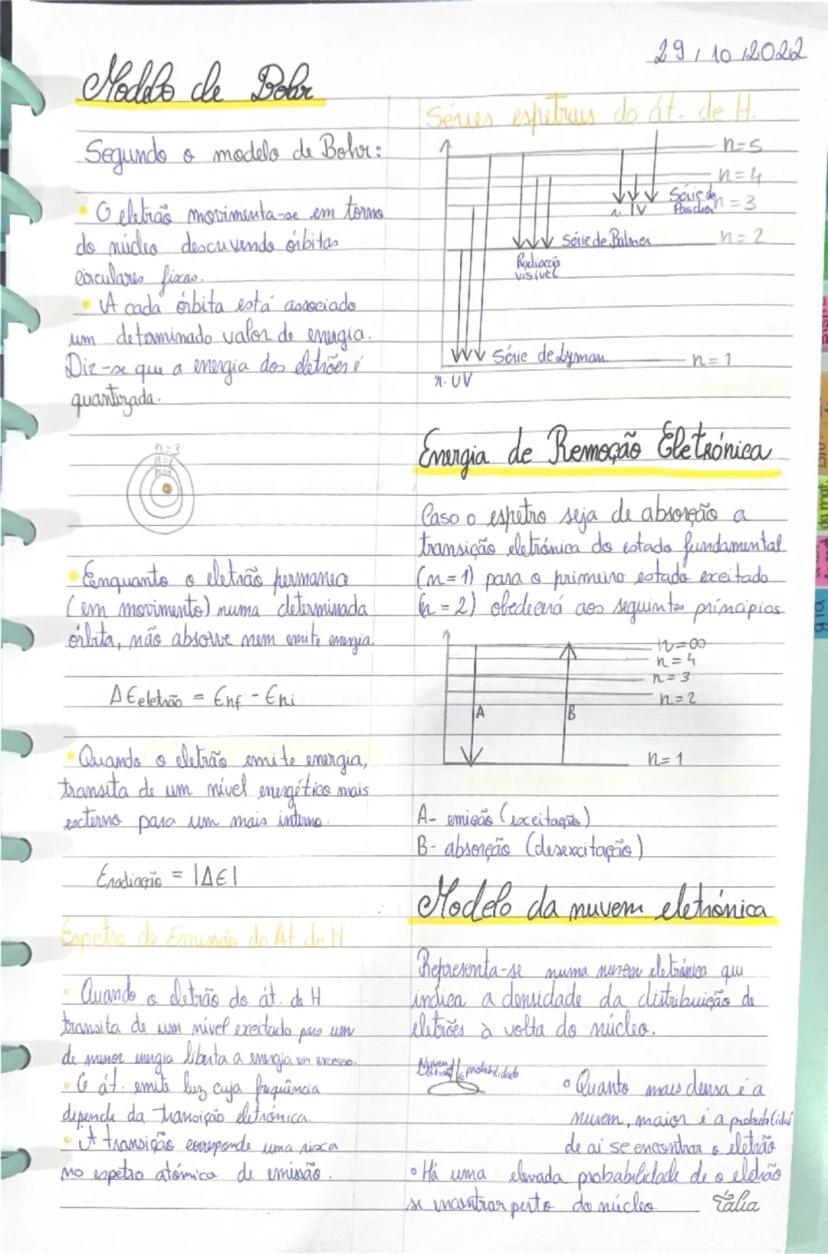 29/10/2022
Modelo de Bohr
Segundo o modelo de Bohr:
• O eletrão movimenta-se em torno
do núcleo descrevendo órbitas
circulares fixas.
• A cada órbita está associado
um determinado valor de energia.
Diz-se que a energia dos eletrões é
quantizada.
n=3
n=2
n=1
• Enquanto o eletrão permanece
(em movimento) numa determinada
órbita, não absorve nem emite energia.
ΔEeletrão = Enf - Eni
• Quando o eletrão emite energia,
transita de um nível energético mais
externo para um mais interno.
Eradiação = |ΔE|
Espetro de Emissão do At de H
• Quando o eletrão do át. de H
transita de um nível excitado para um
de menor energia liberta a energia em excesso.
• O át. emite luz cuja frequência
depende da transição eletrónica.
• A transição corresponde uma risca
no espetro atómico de emissão.
Séries espetrais do át. de H.
n=5
n=4
Série de
Paschen
n=3
r. IV
Série de Balmer
n=2
Radiação
visível
Série de Lyman
n=1
r. UV
Energia de Remoção Eletrónica
Caso o espetro seja de absorção a
transição eletrónica do estado fundamental
(n=1) para o primeiro estado exceitado
(n=2) obedecerá aos seguintes princípios
n=∞
n=4
n=3
n=2
A B
n=1
A- emissão (exceitação)
B- absorção (desexcitação)
Modelo da nuvem eletrónica
Representa-se numa nuvem eletrónica que
indica a densidade da distribuição de
eletrões à volta do núcleo.
Nuvem
probabilidade
• Quanto mais densa é a
nuvem, maior é a probabilidade
de aí se encontrar o eletrão
• Há uma elevada probabilidade de o eletrão
se encontrar perto do núcleo.
Tália